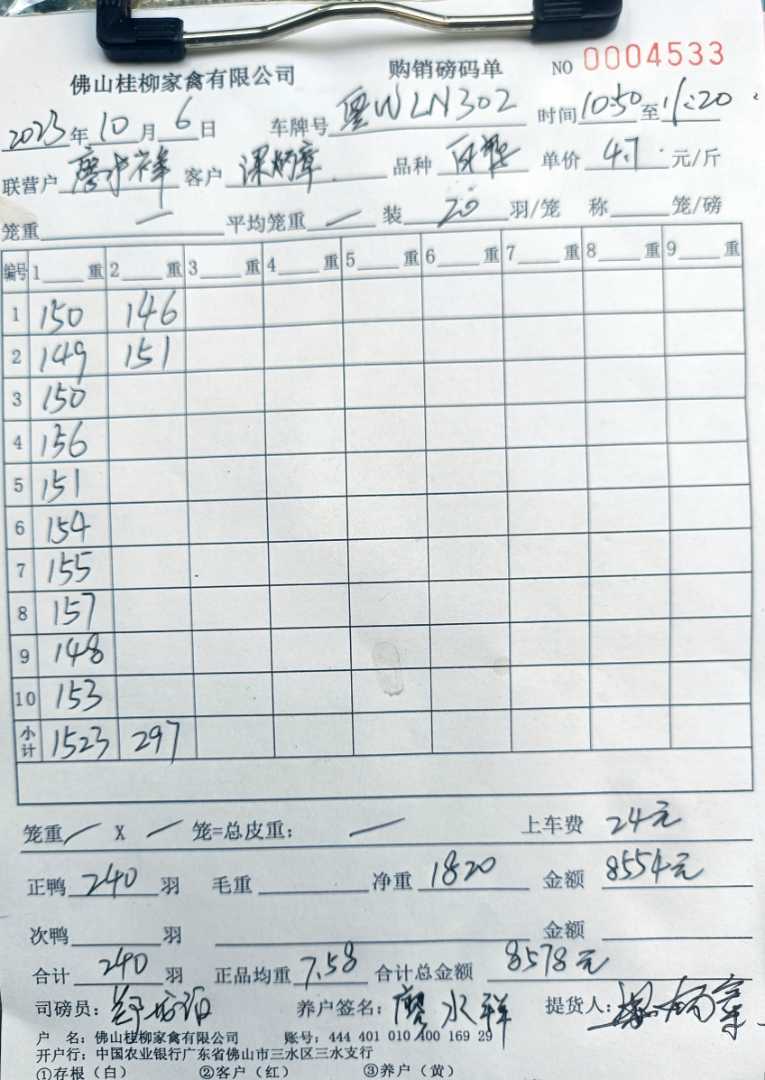 佛山桂柳家禽有限公司 购销磅码单 NO 0004533
2023年10月6日 车牌号 粤WLN302 时间10:50至11:20
联营户 廖水祥 客户 品种 单价 4.7 元/斤
笼重 — 平均笼重 — 装 20 羽/笼 称 笼/磅
编号 1 重 2 重 3 重 4 重 5 重 6 重 7 重 8 重 9 重
1 150 146
2 149 151
3 150
4 156
5 151
6 154
7 155
8 157
9 148
10 153
小计 1523 297
笼重 — X — 笼=总皮重: — 上车费 24元
正鸭 240 羽 毛重 净重 1820 金额 8554元
次鸭 羽 金额
合计 240 羽 正品均重 7.58 合计总金额 8578元
司磅员: 养户签名: 廖水祥 提货人:
户 名: 佛山桂柳家禽有限公司 账号: 444 401 010 400 169 29
开户行: 中国农业银行广东省佛山市三水区三水支行
①存根（白） ②客户（红） ③养户（黄）